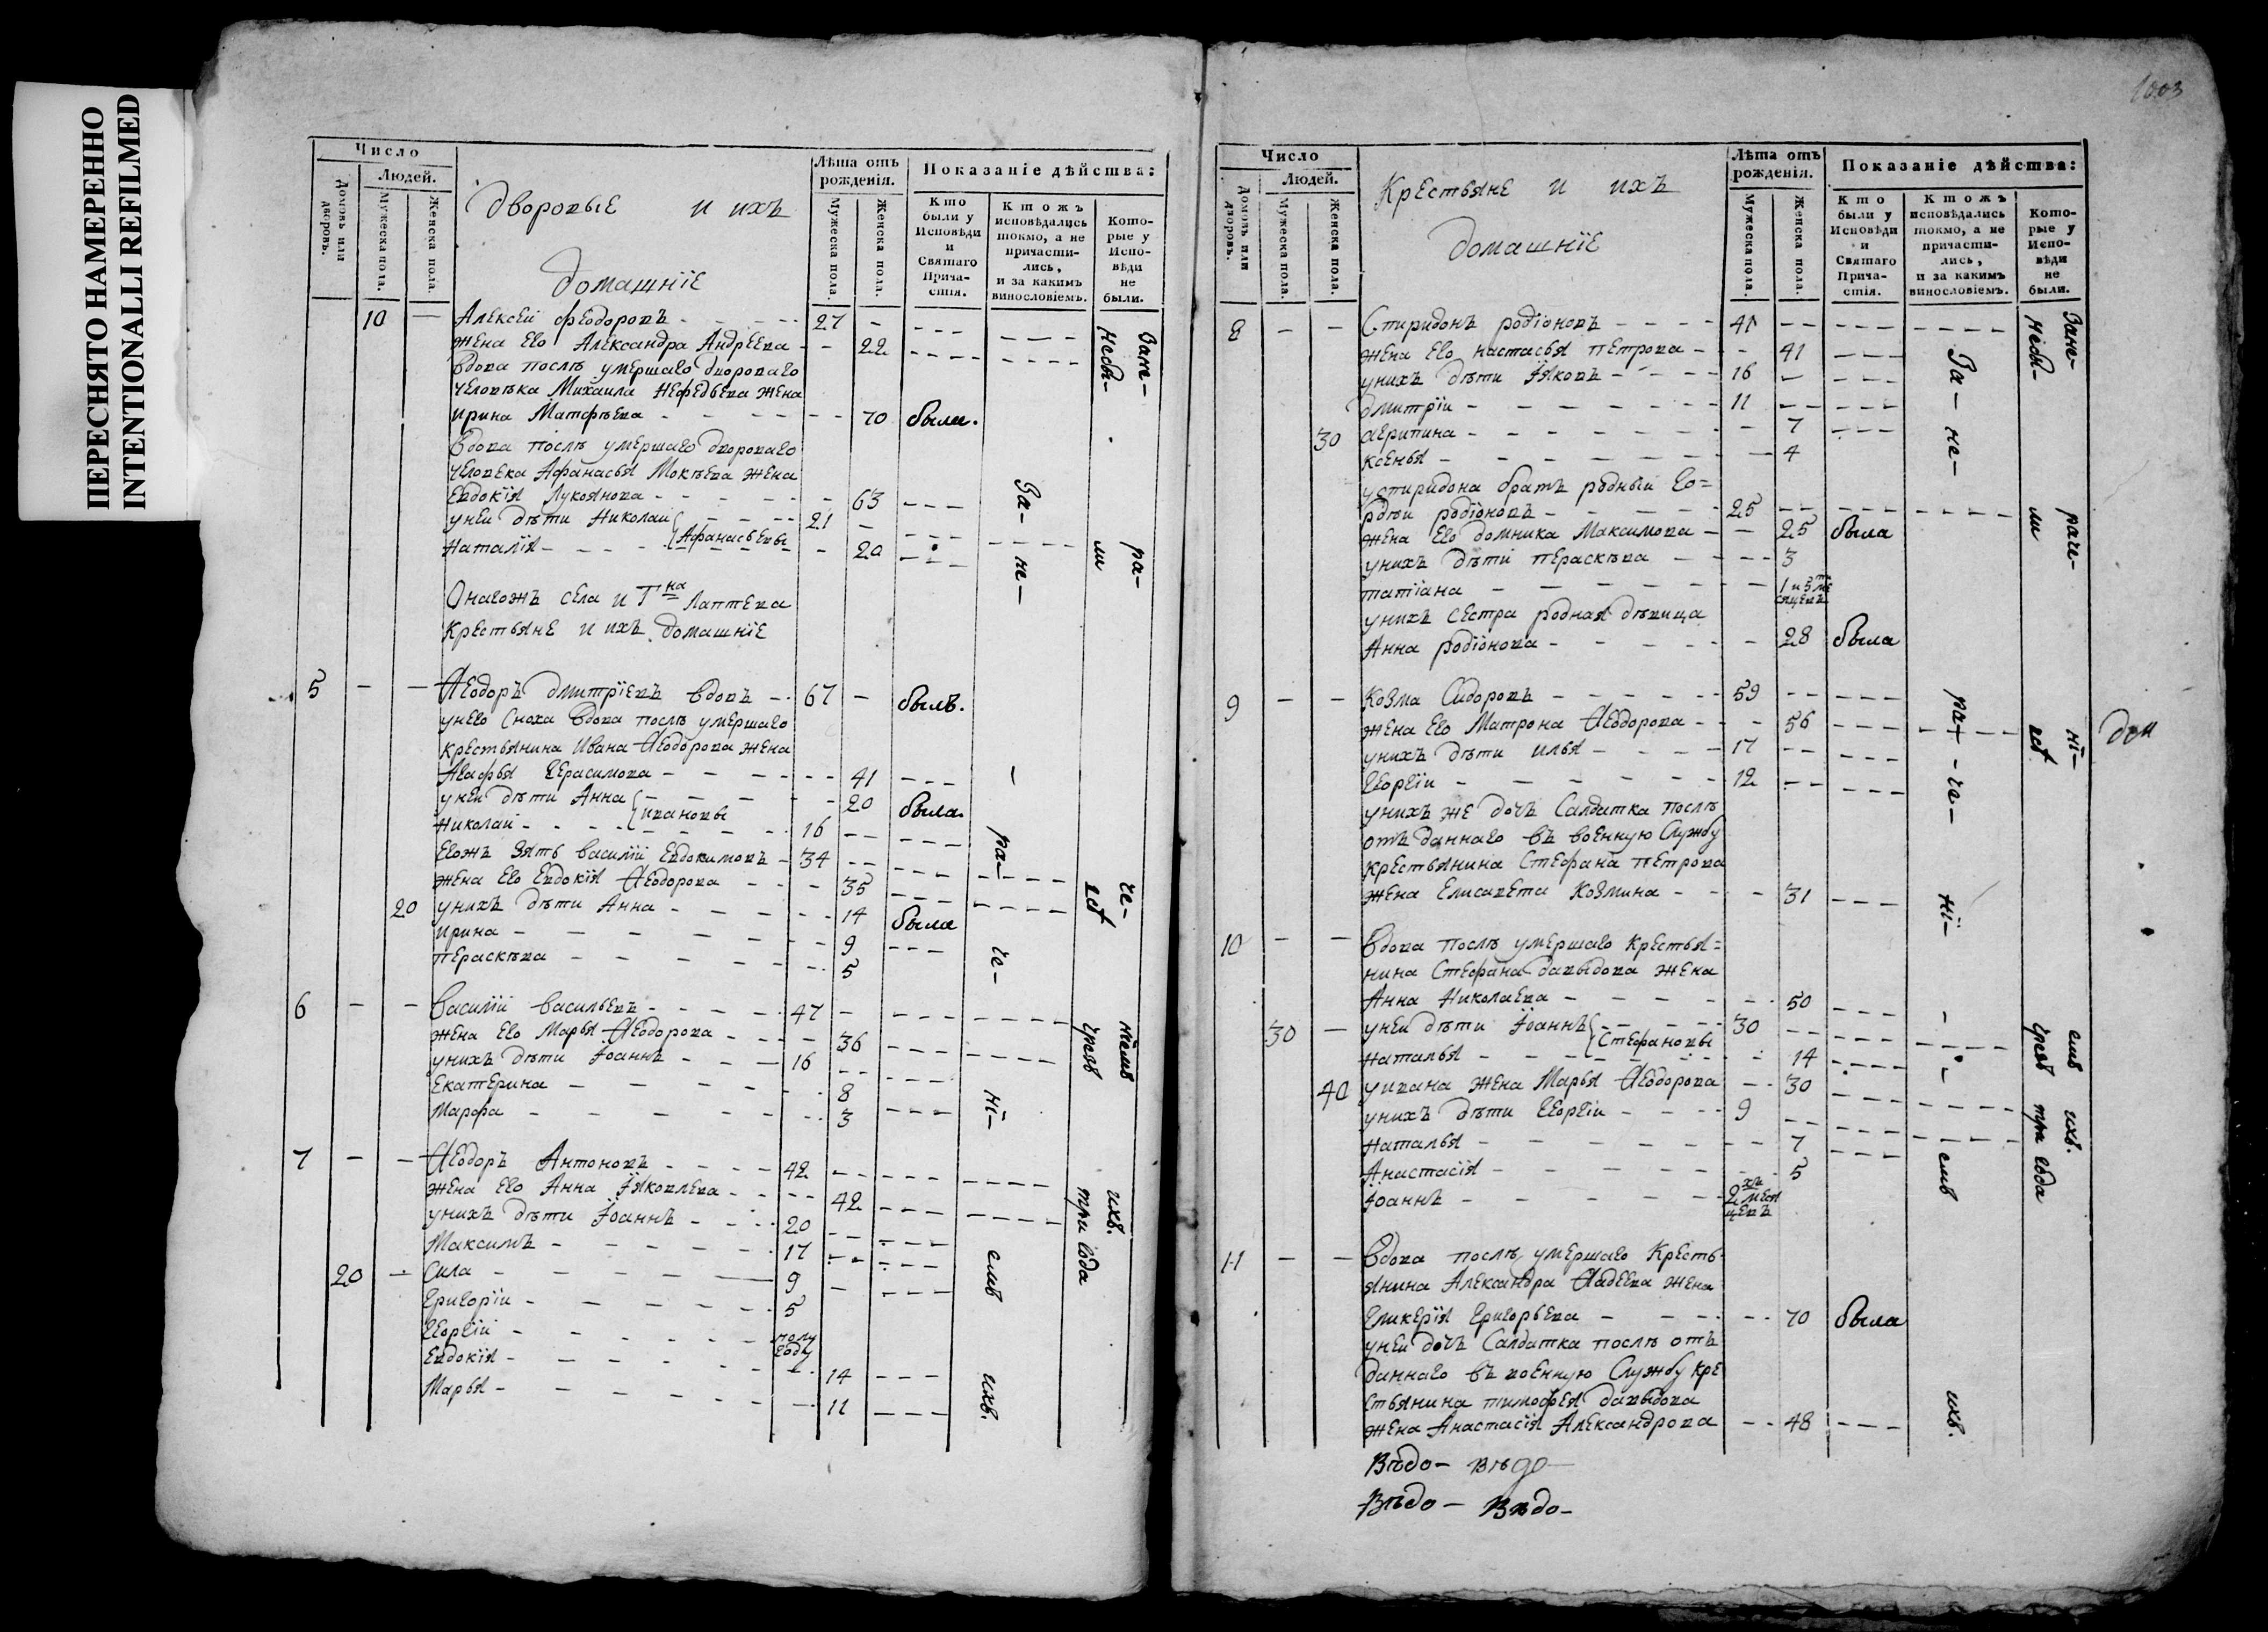 ПЕРЕСНЯТО НАМЕРЕННО
INTENTIONALLI REFILMED
Число
Людей.
Домовъ или дворовъ.
Мужеска пола.
Женска пола.
Дворовые и ихъ
домашнiе
Лѣта отъ рожденiя.
Мужеска пола.
Женска пола.
Показанiе дѣйства:
Кто были у Исповѣди и Святаго Причастiя.
Ктожъ исповѣдались токмо, а не причастились, и за какимъ винословiемъ.
Которые у Исповѣди не были.
10 — Алексеи Феодоровъ - - - - 27 -
жена его Александра Андреева - - 22
вдова послѣ умершаго двороваго
человѣка Михаила Нефедьева жена
Ирина Матфѣева - - - - 70 была.
Вдова послѣ умершаго двороваго
человека Афанасья Мокѣева жена
Евдокiя Лукоянова - - - - 63
унеи дѣти Николаи 21 -
Афанасьевы
Наталiя - - - - 20
Онагожъ села и Г на Лаптева
крестьяне и ихъ домашнiе
5 — — Ѳеодоръ Дмитрiевъ вдовъ - 67 - былъ.
унего сноха вдова послѣ умершаго
крестьянина Ивана Ѳеодорова жена
Агафья Герасимова - - - - 41
унеи дѣти Анна - - 20 была
Ивановы
Николаи - - - - 16 - -
Егожъ зять Василiи Евдокимовъ - 34 - -
жена его Евдокiя Ѳеодорова - - 35
20 унихъ дѣти Анна - - - - 14 была
Ирина - - - - 9
Параскѣва - - - - 5
6 — — Василiи Васильевъ - - - - 47 -
жена его Марья Ѳеодорова - - - 36
унихъ дѣти Iоаннъ - - - 16
Екатерина - - - - 8
Марфа - - - - 3
7 — — Ѳеодоръ Антоновъ - - - - 42
жена его Анна Iяковлева - - - 42
унихъ дѣти Iоаннъ - - - 20
Максимъ - - - - 17
20 — Сила - - - - 9
Григорiи - - - - 5
Георгiи - - - - полу году
Евдокiя - - - - 14
Марья - - - - 11
За-не-ра-че-нi-емъ ихъ.
Зане-ра-че-нiемъ ихъ.
Небы-ли три года
1003
Число
Людей.
Домовъ или дворовъ.
Мужеска пола.
Женска пола.
Крестьяне и ихъ
домашнiе
Лѣта отъ рожденiя.
Мужеска пола.
Женска пола.
Показанiе дѣйства:
Кто были у Исповѣди и Святаго Причастiя.
Ктожъ исповѣдались токмо, а не причастились, и за какимъ винословiемъ.
Которые у Исповѣди не были.
8 — — Спиридонъ Родiоновъ - - - - 41
жена его Настасья Петрова - - 41
унихъ дѣти Iяковъ - - - - 16
Дмитрiи - - - - 11
30 Агрипина - - - - 7
Ксенья - - - - 4
успиридона братъ родныи Го=
рдѣи Родiоновъ - - - - 25
жена его Домника Максимова - - 25 была
унихъ дѣти Параскѣва - - - 3
Татiана - - - - 1 и 5 ти ме сяцевъ
унихъ сестра родная дѣвица
Анна Родiонова - - - - 28 была
9 — — Козма Сидоровъ - - - - 59
жена его Матрона Ѳеодорова - - 56
унихъ дѣти Илья - - - - 17
Георгiи - - - - 12
унихъ же дочъ Салдатка послѣ
отъ даннаго въ военную службу
крестьянина Стефана Петрова
жена Елисавета Козмина - - - 31
10 — — Вдова послѣ умершаго крестья=
нина Стефана Давыдова жена
Анна Николаева - - - - 50
30 — унеи дѣти Iоаннъ - - - 30
Стефановы
Наталья - - - - 14
40 уивана жена Марья Ѳеодорова - - 30
унихъ дѣти Георгiи - - - - 9
Наталья - - - - 7
Анастасiя - - - - 5
Iоаннъ - - - - 2 хъ меся цевъ
11 — — Вдова послѣ умершаго кресть-
янина Александра Ѳадѣева жена
Гликерiя Григорьева - - - - 70 была
унеи дочъ Салдатка послѣ отъ
даннаго въ военную службу кре
стьянина Тимофея Давыдова
жена Анастасiя Александрова - - 48
За-не-ра-че-нi-емъ ихъ.
Зане-раче-нi-емъ ихъ.
Небы-ли три года
Вѣдо- вѣдо-
Вѣдо- Вѣдо-